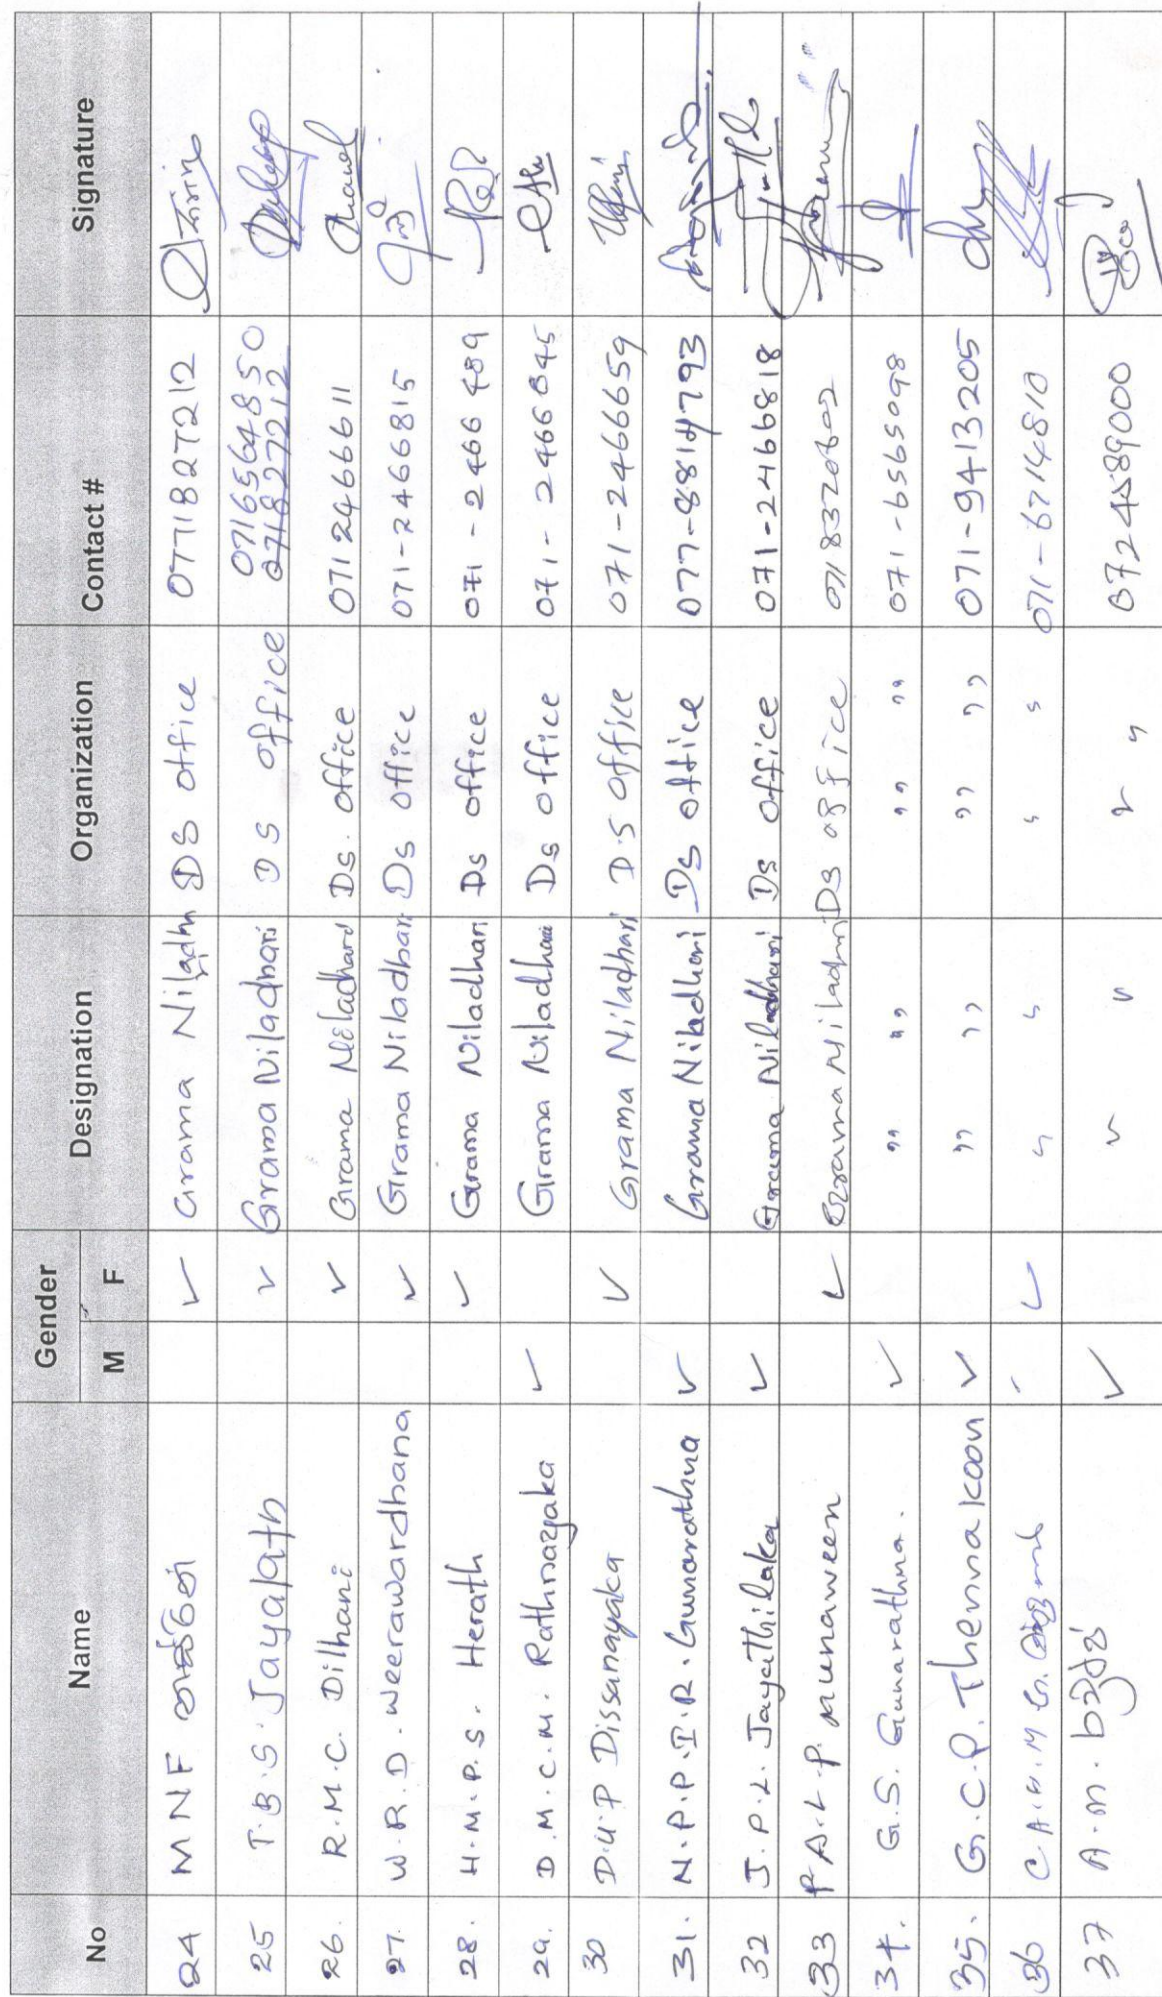 No Name Gender Designation Organization Contact # Signature
M F
24 MNF ✓ Grama Niladhri DS office 0771827212
25 T.B.S. Jayalath ✓ Grama Niladhari DS office 0716564850
071827212
26. R.M.C. Dilhani ✓ Grama Niladhari Ds. office 071 2466611
27. W.R.D. Weerawardhana ✓ Grama Niladhari Ds office 071-2466815
28. H.M.P.S. Herath ✓ Grama Niladhari Ds office 071-2466489
29. D.M.C.M. Rathnayaka ✓ Grama Niladhari Ds office 071-2466845
30 D.U.P Dissanayaka ✓ Grama Niladhari D.S office 071-2466659
31. N.P.P.I.R. Gunarathna ✓ Grama Niladhari Ds office 077-8814793
32 J.P.L. Jayathilaka ✓ Grama Niladhari Ds office 071-2466818
33 P A.L.P. Munaween ✓ Grama Niladhari Ds office
34. G.S. Gunarathna. ✓ ,, ,, ,, ,, 071-6565098
35. G.C.P. Thennakoon ✓ ,, ,, ,, ,, 071-9413205
36 C.A.H.M.G. ✓ ,, ,, ,, ,, 071-6714810
37 A.M. ✓ ,, ,, ,, ,, 0724589000